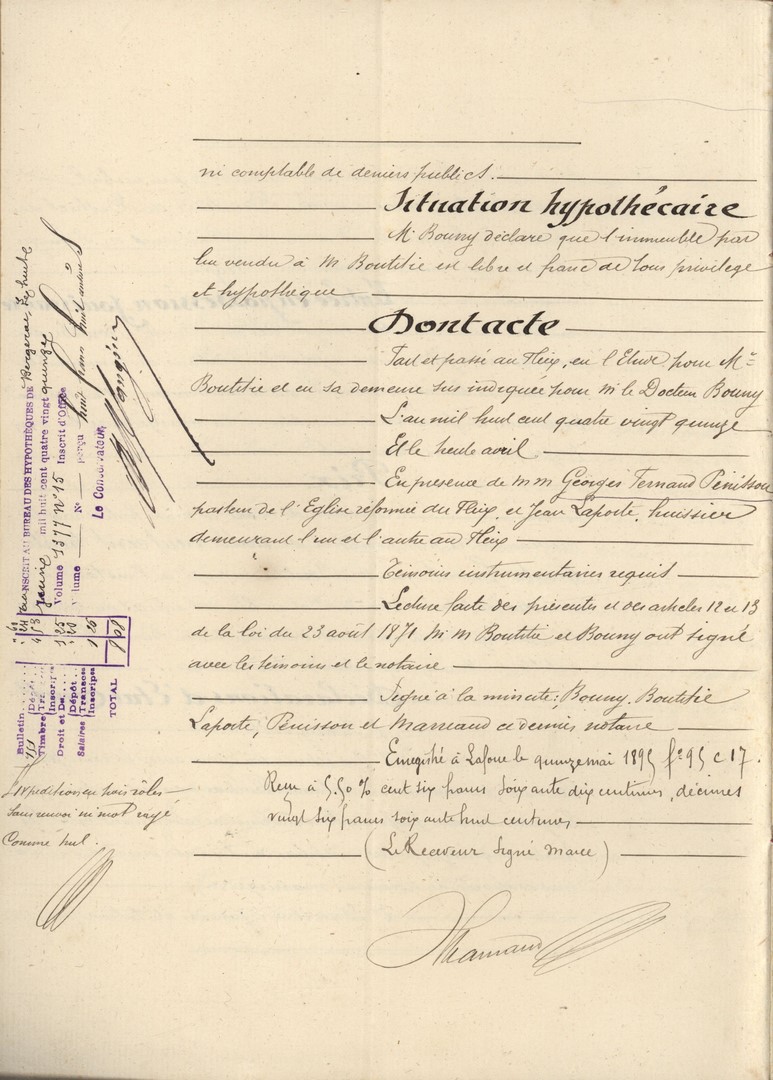 ni comptable de deniers publics.
Situation hypothécaire
Mr Bouny déclare que l'immeuble par
lui vendu à M Boutitie est libre et franc de tous privilège
et hypothèque
Dont acte
Fait et passé au Fleix, en l'Etude pour Mr
Boutitie et en sa demeure sus indiquée pour M le Docteur Bouny
L'an mil huit cent quatre vingt quinze
Et le trente avril
En présence de M M Georges Fernand Pénisson
pasteur de l'Eglise réformée du Fleix, et Jean Laporte, huissier
demeurant l'un et l'autre au Fleix
Témoins instrumentaires requis
Lecture faite des présentes et des articles 12 et 13
de la loi du 23 août 1871 M M Boutitie et Bouny ont signé
avec les témoins et le notaire
Signé à la minute: Bouny. Boutitie
Laporte, Penisson et Marnaud ce dernier notaire
Enregistré à Laforce le quinze mai 1895 fo 95 c 17.
Reçu à 5.50 % cent six francs soixante dix centimes, décimes
vingt six francs soixante huit centimes
(Le Receveur Signé Marce)
Expédition en trois rôles
sans renvoi ni mot rayé
Comme nul.
TRANSCRIT AU BUREAU DES HYPOTHÈQUES DE Bergerac, le
mil huit cent quatre vingt quinze
Volume 1377 No 15 Inscrit d'Office
Volume No perçu huit francs huit centimes
Le Conservateur,
Bulletin
Dépôt
Timbre Trans
Inscrip
Droit et De 1 25
Dépôt
Salaires Transcrs 1 25
Inscrips
TOTAL 8 08